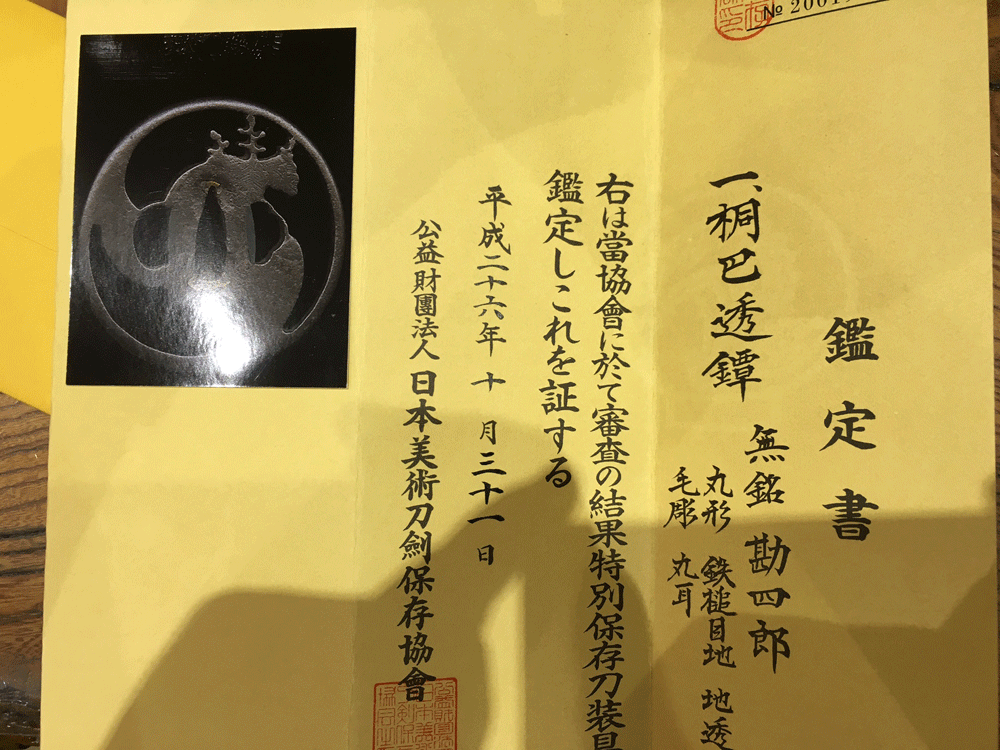 № 2001
鑑定書
一、桐巴透鐔
無銘 勘四郎
丸形 鉄槌目地 地透
毛彫 丸耳
右は當協會に於て審査の結果特別保存刀装具
鑑定しこれを証する
平成二十六年 十 月三十一日
公益財團法人 日本美術刀劍保存協會